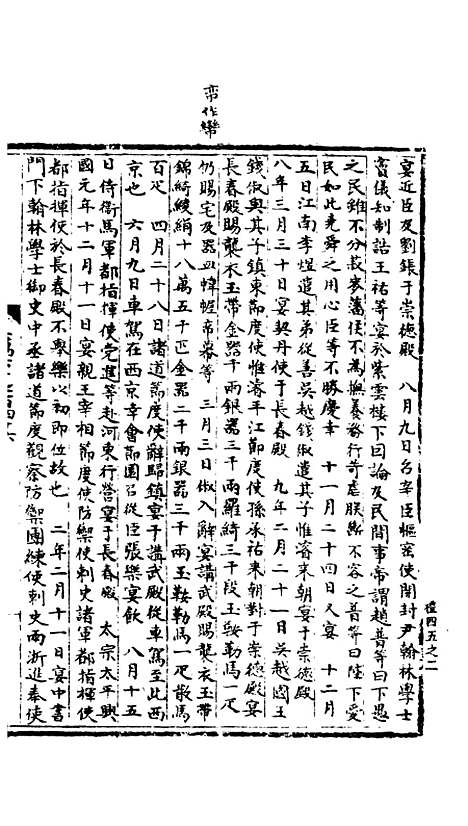 帝作蠻
禮四五之二
宴近臣及劉鋹于崇德殿　八月九日召宰臣樞密使開封尹翰林學士
竇儀知制誥王祐等宴於紫雲樓下因論及民間事帝謂趙普等曰下愚
之民雖不分菽麥藩侯不為撫養務行苛虐朕斷不容之普等曰陛下愛
民如此堯舜之用心臣等不勝慶幸　十一月二十四日又宴　十二月
五日江南李煜遣其弟從善吳越錢俶遣其子惟濬來朝宴于崇德殿
八年三月三十日宴契丹使于長春殿　九年二月二十一日吳越國王
錢俶與其子鎮東節度使惟濬平江節度使孫承祐來朝對于崇德殿宴
長春殿賜襲衣玉帶金器千兩銀器三千兩羅綺三千段玉鞍勒馬一疋
仍賜宅及器皿幃幄帟器等　三月三日俶入辭宴講武殿賜襲衣玉帶
錦綺綾絹十八萬五千疋金器二千兩銀器三千兩玉鞍勒馬一疋散馬
百疋　四月二十八日諸道節度使辭歸鎮宴于講武殿從車駕至此西
京也　六月九日車駕在西京幸會節園召從臣張樂宴飲　八月十五
日侍衛馬軍都指揮使党進等赴河東行營宴于長春殿　太宗太平興
國元年十二月十一日宴親王宰相節度使防禦使刺史諸軍都指揮使
都指揮使於長春殿不舉樂以初即位故也　二年二月十一日宴中書
門下翰林學士御史中丞諸道節度觀察防禦團練使刺史兩浙進奉使